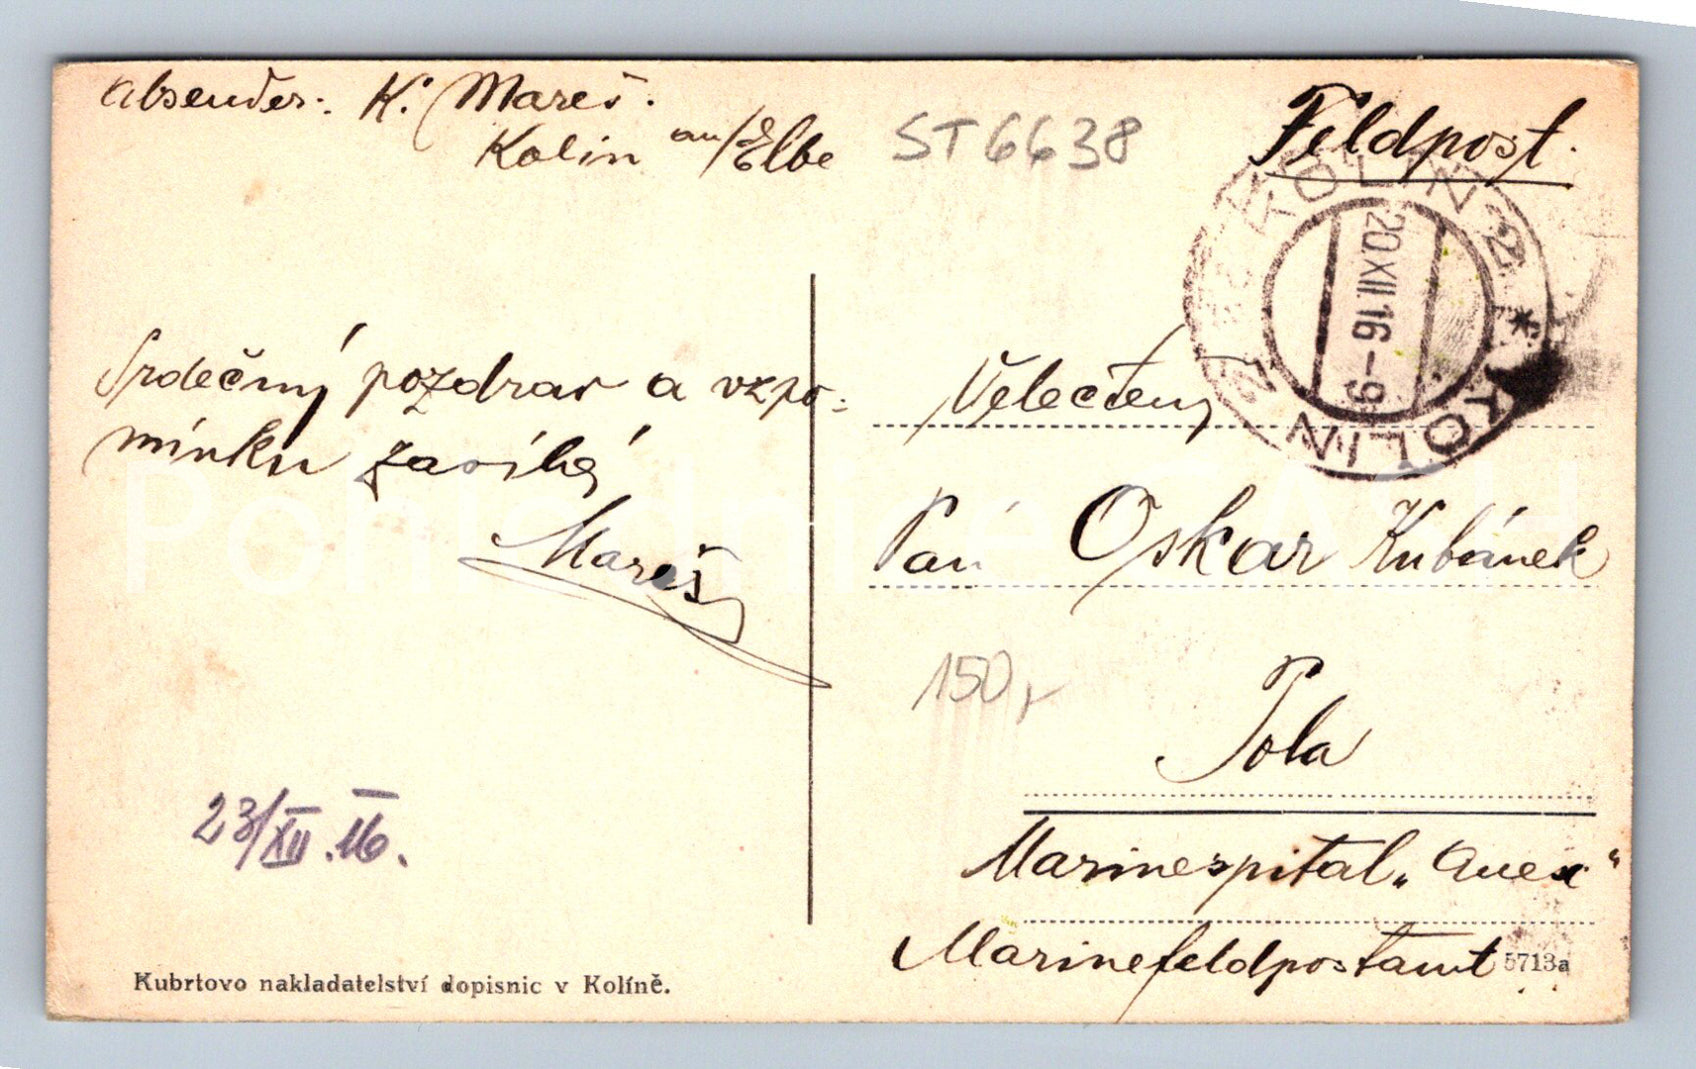 Absender: K. Mareš.
Kolin an/Elbe
ST6638
Feldpost.
KOLÍN 2 * KOLIN 2
20.XII.16-9
Srdečný pozdrav a vzpo-
mínku zasílá
Mareš
Velectěný
Pan Oskar Kubánek
150,-
Pola
23/XII.16.
Marinespital „Anex"
Marinefeldpostamt
5713a
Kubrtovo nakladatelství dopisnic v Kolíně.